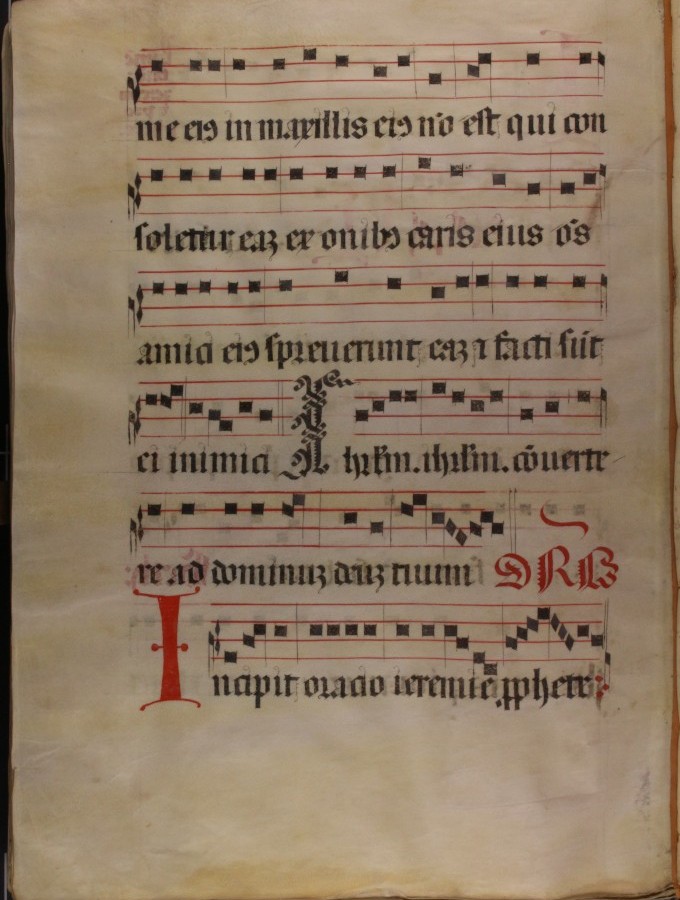 me eiꝰ in maxillis eiꝰ nō est qui con
soletur eaꝫ ex oīnibꝰ caris eius oēs
amici eiꝰ spreuerunt eaꝫ ⁊ facti sūt
ei inimici Ihrlm̄. ihrlm̄. cōuerte
re ad dominuꝫ deuꝫ tuum ORO
Incipit oracio ieremie ꝓphete